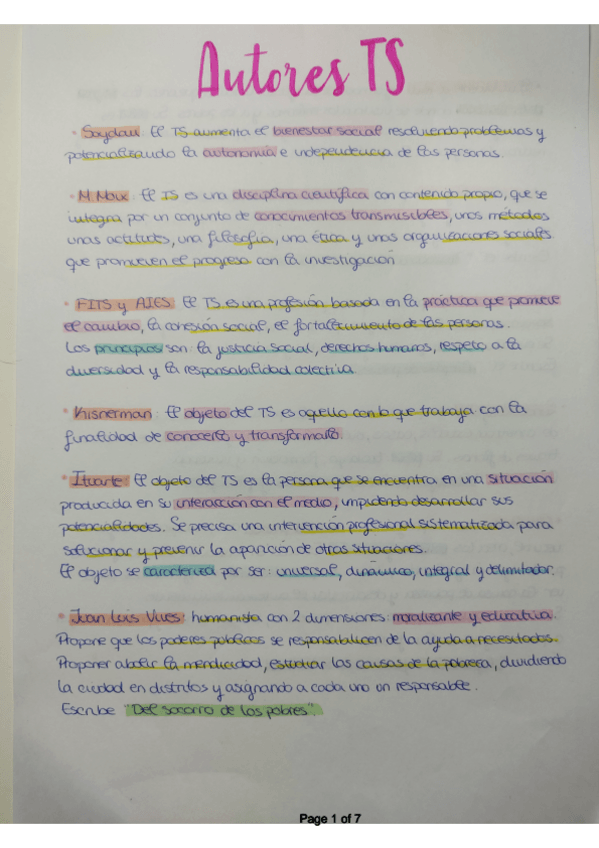 Autores TS
• Soydan: El TS aumenta el bienestar social resolviendo problemas y
potencializando la autonomía e independencia de las personas.
• M Moix: El TS es una disciplina científica con contenido propio, que se
integra por un conjunto de conocimientos transmisibles, unos métodos
unas actitudes, una filosofía, una ética y unas organizaciones sociales
que promueven el progreso con la investigación.
• FITS y AIES: El TS es una profesión basada en la práctica que promueve
el cambio, la cohesión social, el fortalecimiento de las personas.
Los principios son: la justicia social, derechos humanos, respeto a la
diversidad y la responsabilidad colectiva.
• Kisnerman: El objeto del TS es aquello con lo que trabaja con la
finalidad de conocerlo y transformarlo.
• Ituarte: El objeto del TS es la persona que se encuentra en una situación
producida en su interacción con el medio, impidiendo desarrollar sus
potencialidades. Se precisa una intervención profesional sistematizada para
solucionar y prevenir la aparición de otras situaciones.
El objeto se caracteriza por ser: universal, dinámico, integral y delimitador.
• Juan Luis Vives: humanista con 2 dimensiones: moralizante y educativa.
Propone que los poderes públicos se responsabilicen de la ayuda a necesitados.
Proponer abolir la mendicidad, estudiar las causas de la pobreza, dividiendo
la ciudad en distritos y asignando a cada uno un responsable.
Escribe "Del socorro de los pobres".
Page 1 of 7